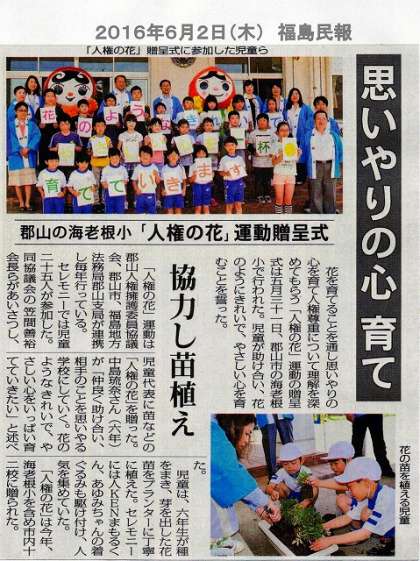 2016年6月2日(木) 福島民報
「人権の花」贈呈式に参加した児童ら
花のよう
杯
育てていきます
思いやりの心 育て
郡山の海老根小「人権の花」運動贈呈式
花を育てることを通し思いやりの
心を育て人権尊重について理解を深
めてもらう「人権の花」運動の贈呈
式は五月三十一日、郡山市の海老根
小で行われた。児童が助け合い、花
のようにきれいで、やさしい心を育
むことを誓った。
協力し苗植え
「人権の花」運動は
郡山人権擁護委員協議
会、郡山市、福島地方
法務局郡山支局が連携
し毎年行っている。
セレモニーでは児童
二十五人が参加した。
同協議会の笠間善裕
会長らがあいさつし、
児童代表に苗などの
「人権の花」を贈った。
中島琉奈さん(六年)
が「仲良く助け合い、
相手のことを思いやる
学校にしていく。花の
ようなきれいで、や
さしい心をいっぱい育
てていきたい」と述べ
た。
児童は、六年生が種
をまき、芽を出した花
苗をプランターに丁寧
に植えた。セレモニー
には人KENまもるく
ん、あゆみちゃんの着
ぐるみも駆け付け、人
気を集めていた。
「人権の花」は今年、
海老根小を含め市内十
二校に贈られた。
花の苗を植える児童